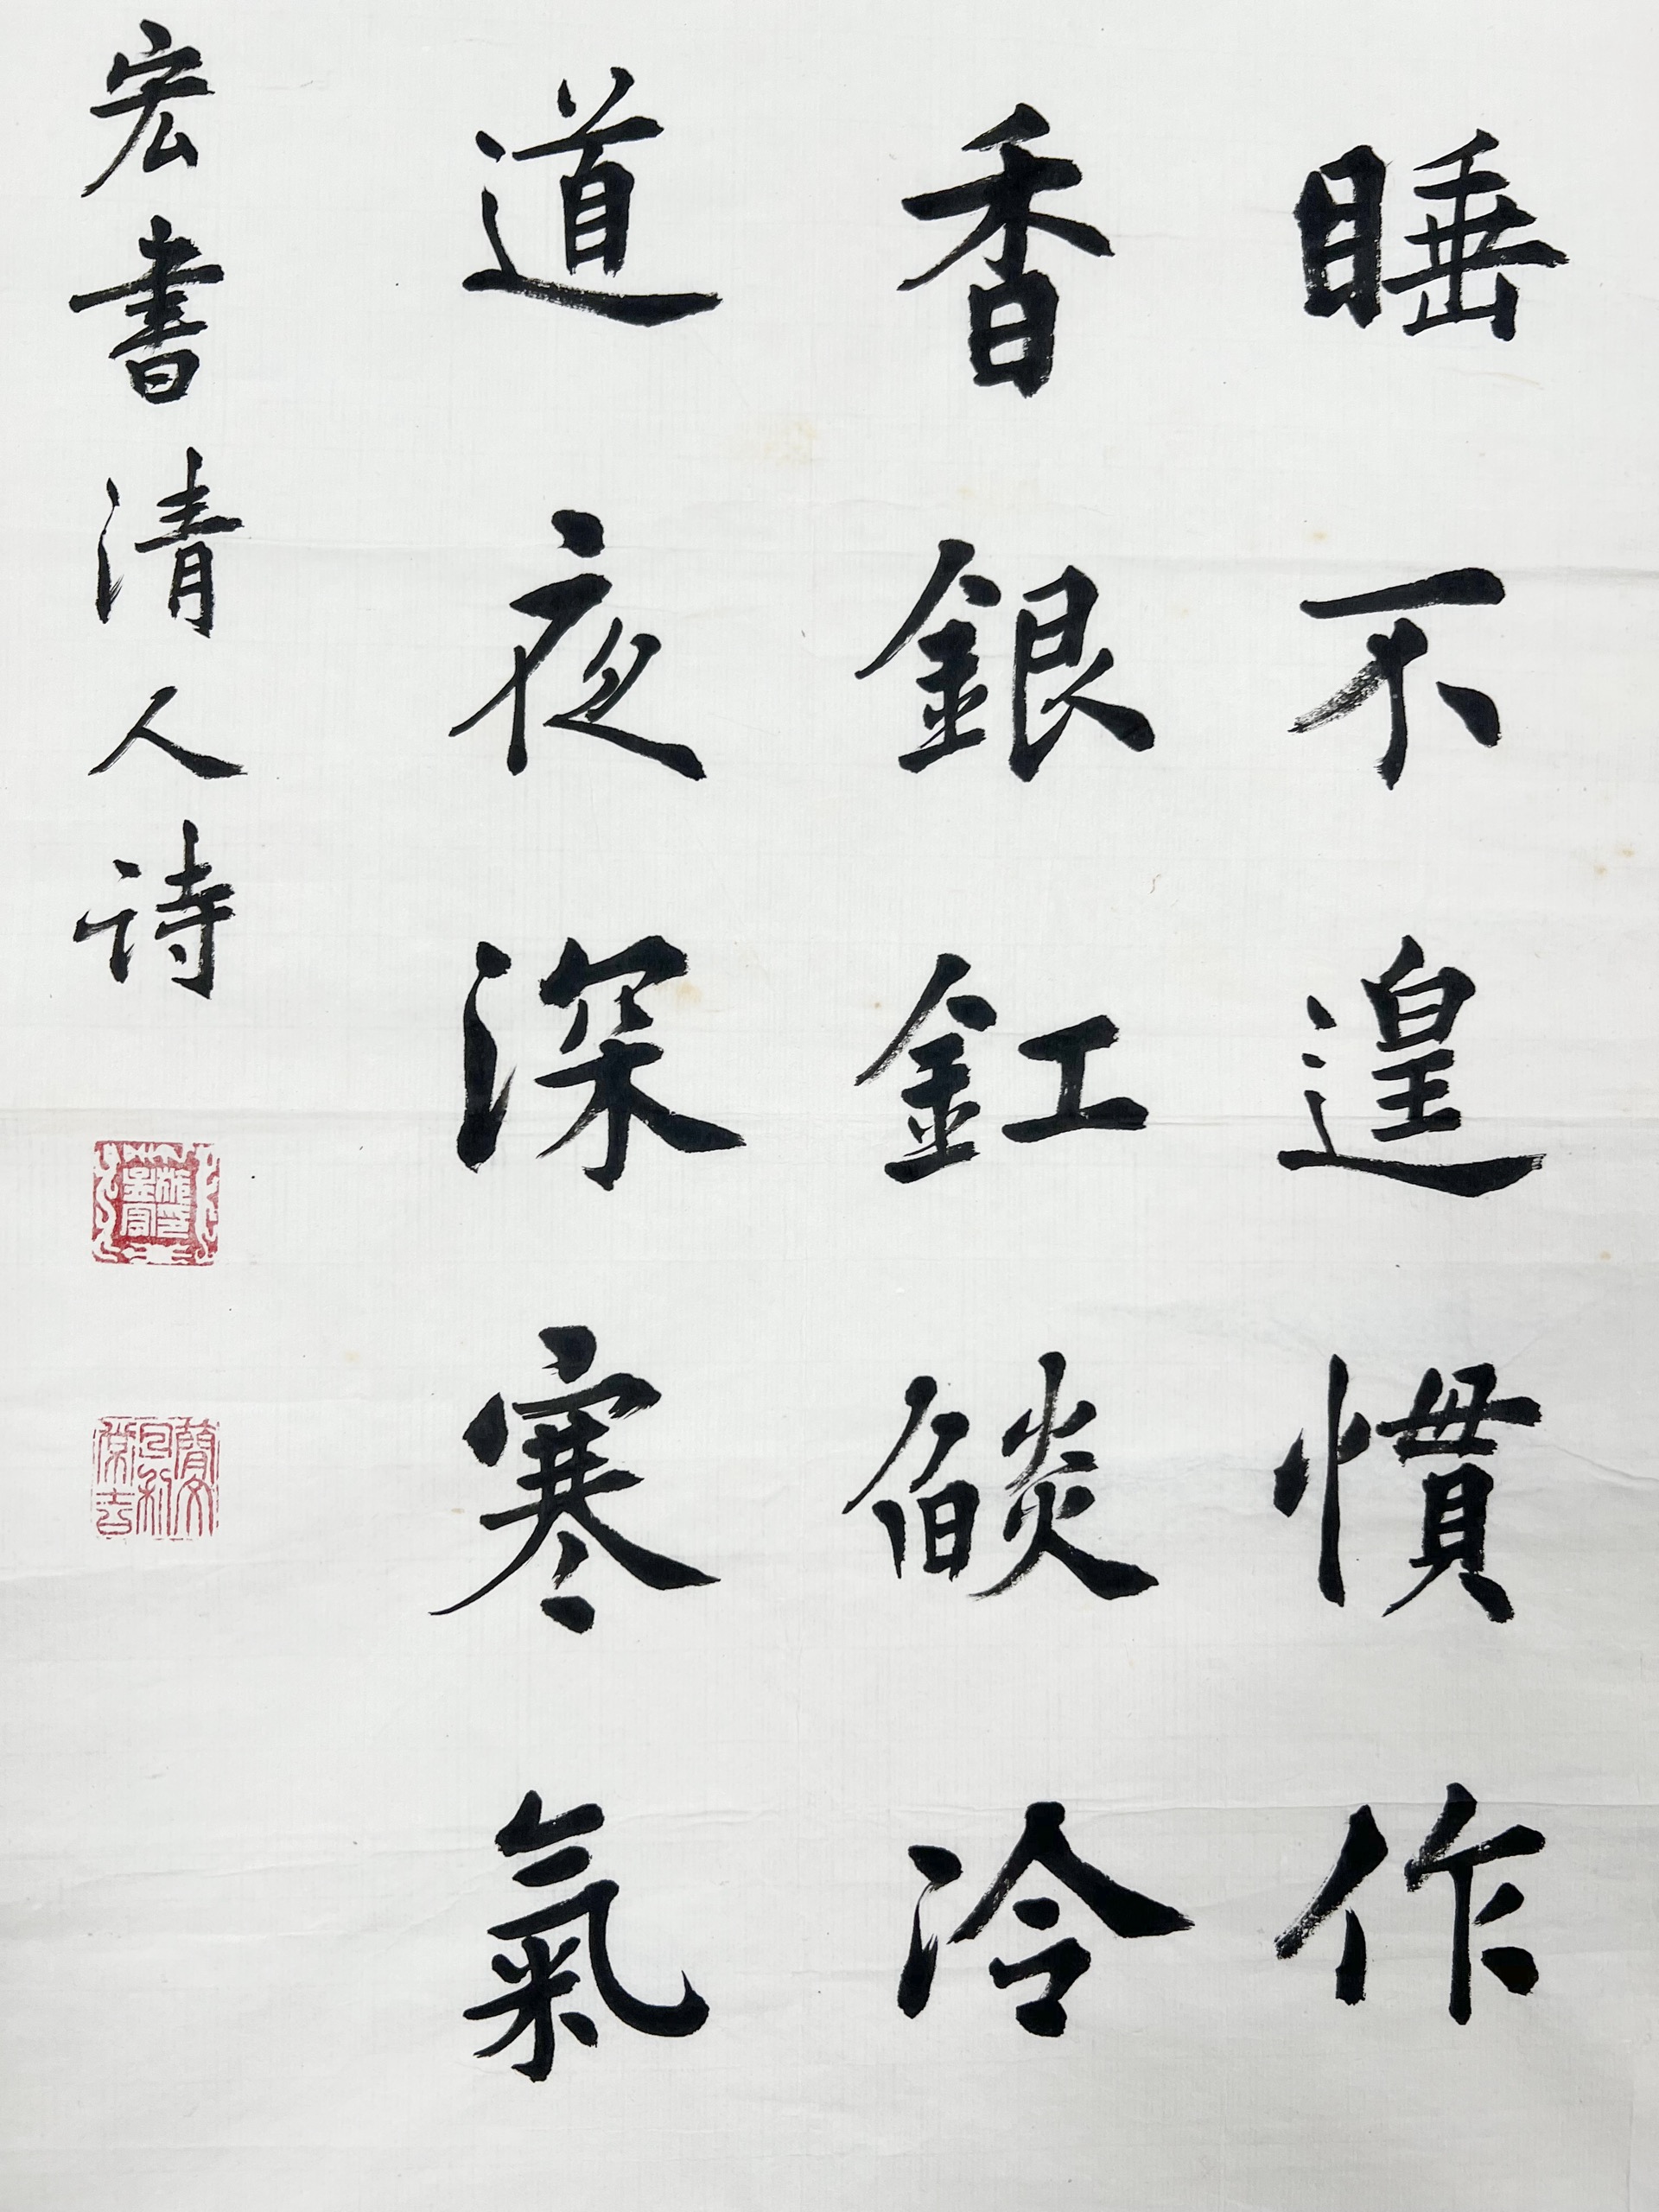 睡不遑慣作
香銀釭燄冷
道夜深寒氣
宏書清人诗